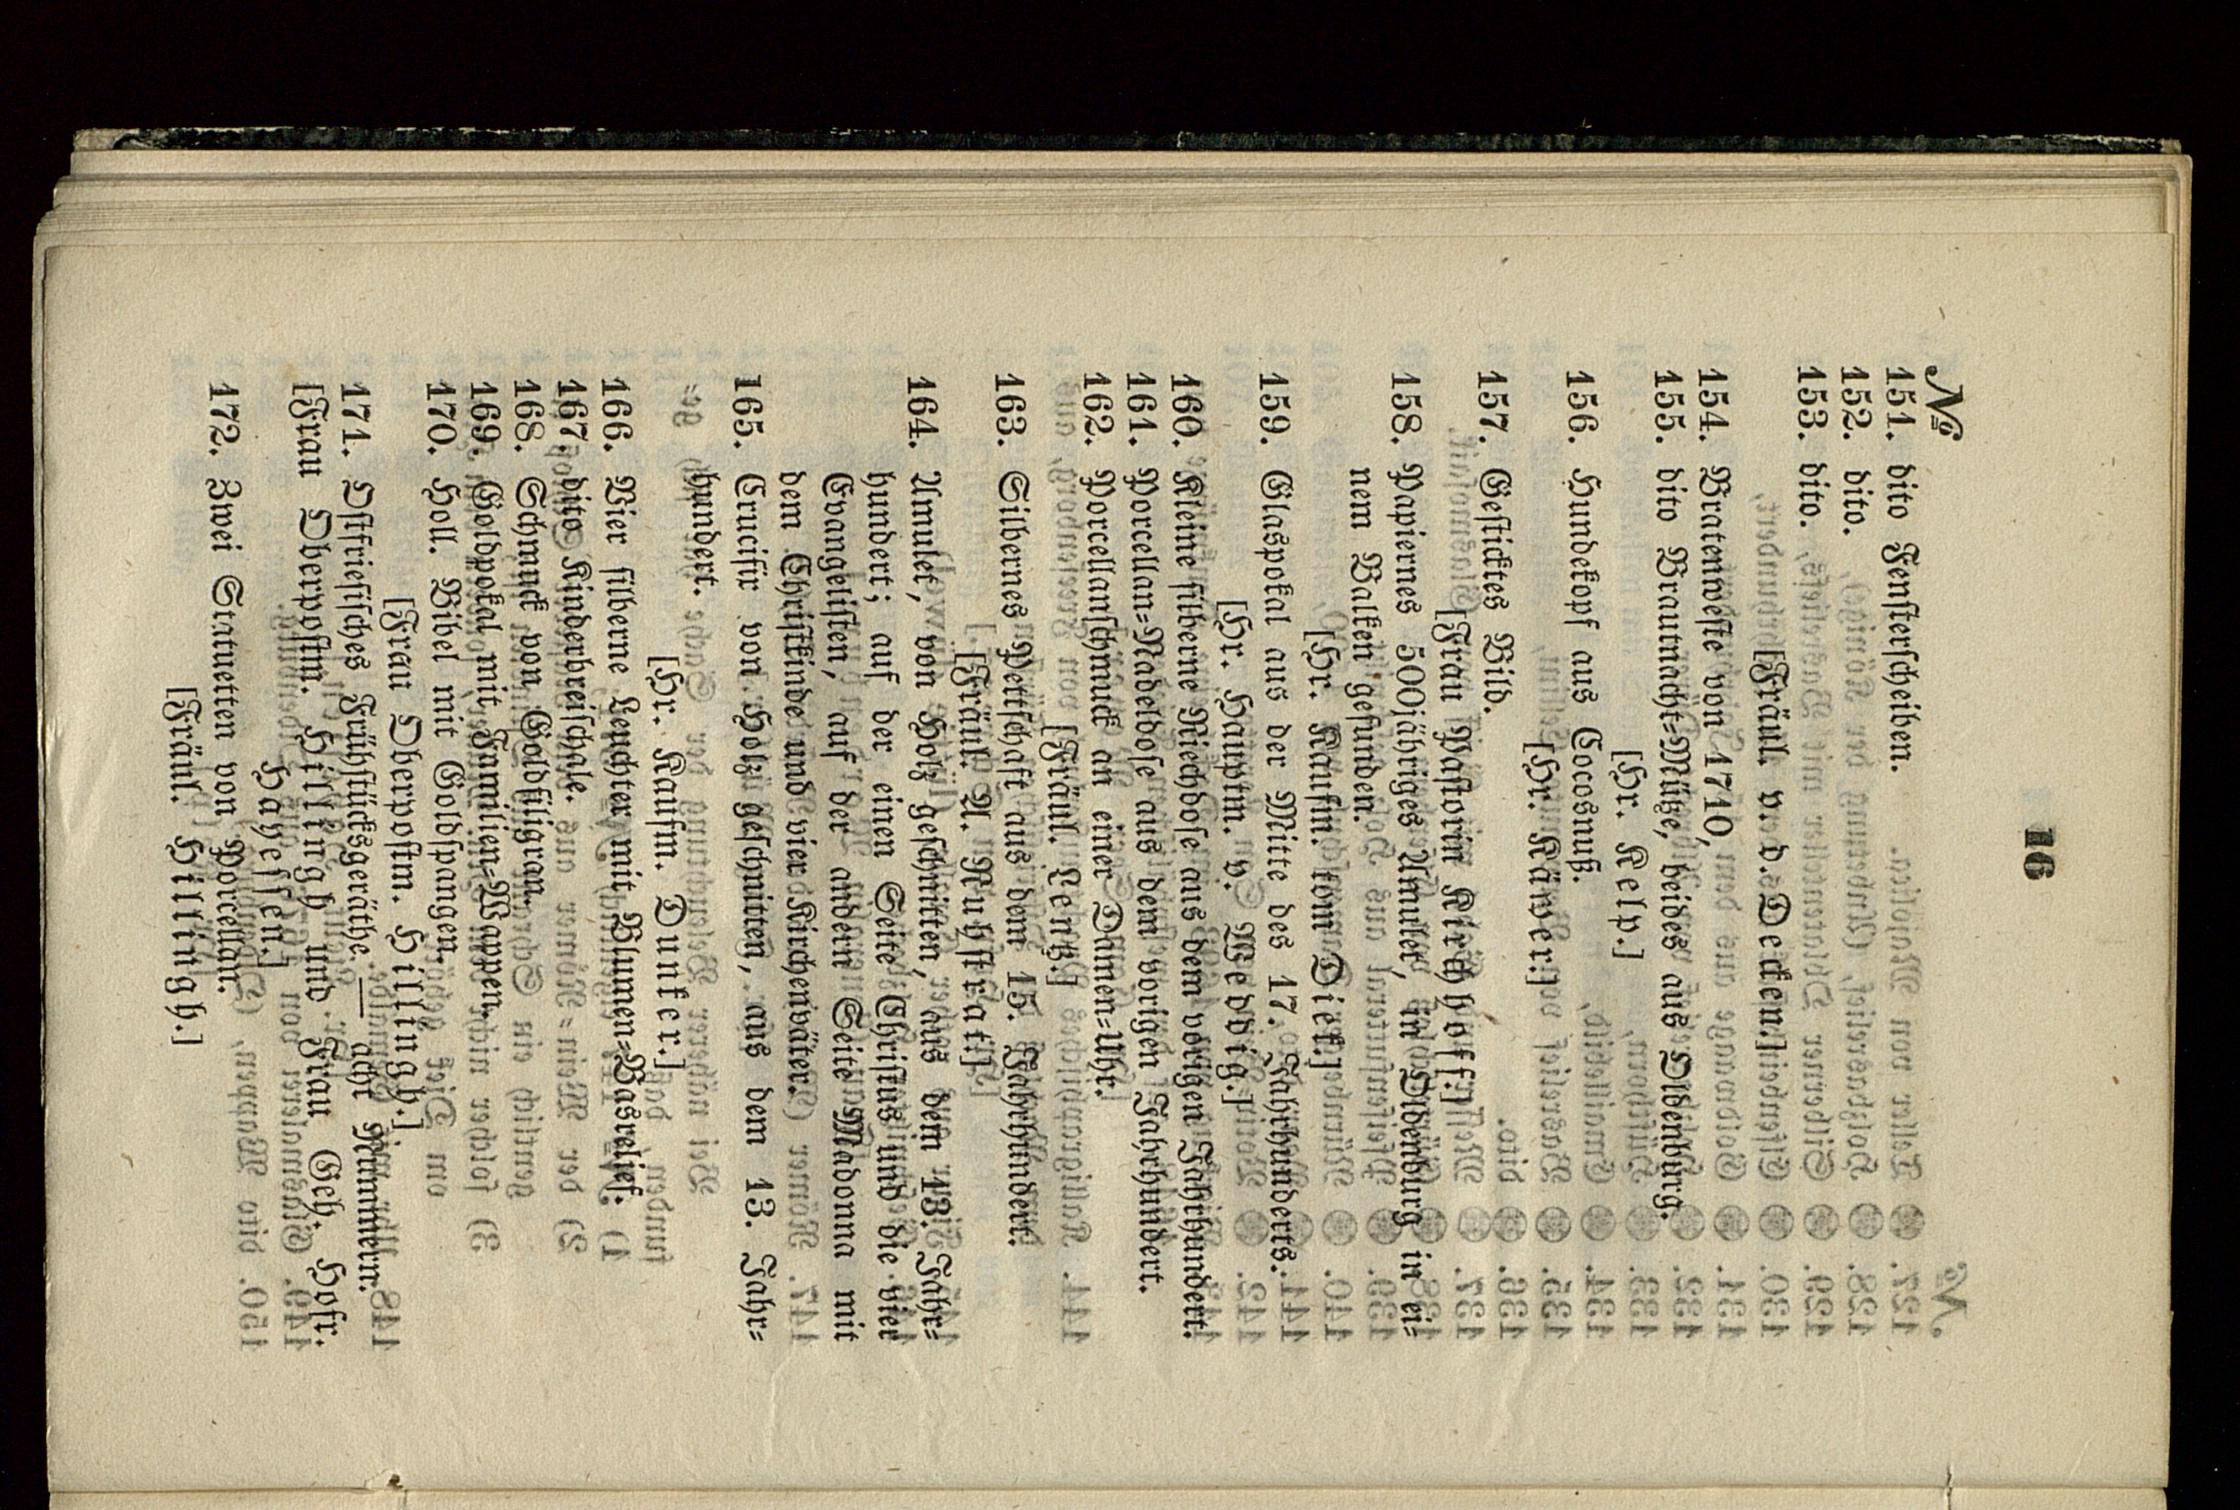 16
№
151. dito Fenſterſcheiben.
152. dito.
153. dito.
[Fräul. v. d. Decken.]
154. Bratenweſte von 1710,
155. dito Brautnacht=Mütze, beides aus Oldenburg.
[Hr. Kelp.]
156. Hundekopf aus Cocosnuß.
[Hr. Käwer.]
157. Geſticktes Bild.
[Frau Paſtorin Kirchhoff.]
158. Papiernes 500jähriges Amulet, in Oldenburg in ei=
nem Balken gefunden.
[Hr. Kaufm. tom Dieck.]
159. Glaspokal aus der Mitte des 17. Jahrhunderts.
[Hr. Hauptm. v. Weddig.]
160. Kleine ſilberne Riechdoſe aus dem vorigen Jahrhundert.
161. Porcellan=Nadeldoſe aus dem vorigen Jahrhundert.
162. Porcellanſchmuck an einer Damen=Uhr.
[Fräul. Lentz.]
163. Silbernes Pettſchaft aus dem 15. Jahrhundert.
[Fräul. A. Muhſtratt.]
164. Amulet, von Holz geſchnitten, aus dem 13. Jahr=
hundert; auf der einen Seite Chriſtus und die vier
Evangeliſten, auf der andern Seite Madonna mit
dem Chriſtkinde und vier Kirchenväter.
165. Crucifix von Holz geſchnitten, aus dem 13. Jahr=
hundert.
[Hr. Kaufm. Dunker.]
166. Vier ſilberne Leuchter mit Blumen=Basrelief.
167. dito Kinderbreiſchale.
168. Schmuck von Goldfiligran.
169. Goldpokal mit Familien=Wappen.
170. Holl. Bibel mit Goldſpangen.
[Frau Oberpoſtm. Hillingh.]
171. Oſtfrieſiſches Frühſtücksgeräthe — acht Nummern.
[Frau Oberpoſtm. Hillingh und Frau Geh. Hofr.
Hayeſſen.]
172. Zwei Statuetten von Porcellan.
[Fräul. Hillingh.]